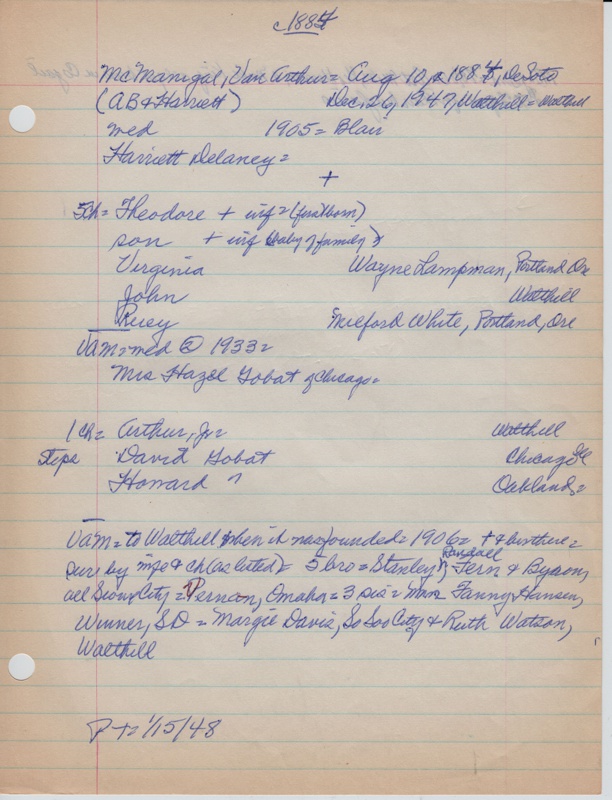 c1884
McManigal, Van Arthur = Aug 10, 1884, DeSoto
(AB & Harriett) Dec, 26, 1947, Walthill = Walthill
med 1905 = Blair
Harriett Delaney =
+
5ch = Theodore + inf = (firstborn)
son + inf (baby of family)
Virginia Wayne Lampman, Portland Ore
John Walthill
Ruey Milford White, Portland, Ore
VAM = med @ 1933 =
Mrs Hazel Gobat of Chicago =
1 ch = Arthur, Jr = Walthill
Steps David Gobat Chicago Ill
Howard " Oakland =
VAM = to Walthill when it was founded = 1906 = + & bur there =
sur by wife & ch (as listed) = 5 bro = Stanley, Randall, Fern & Byron,
all Sioux City = Vernon, Omaha = 3 sis = Mrs Fanny Hansen,
Winner, SD = Margie Davis, So Soo City & Ruth Watson,
Walthill
P + = 1/15/48